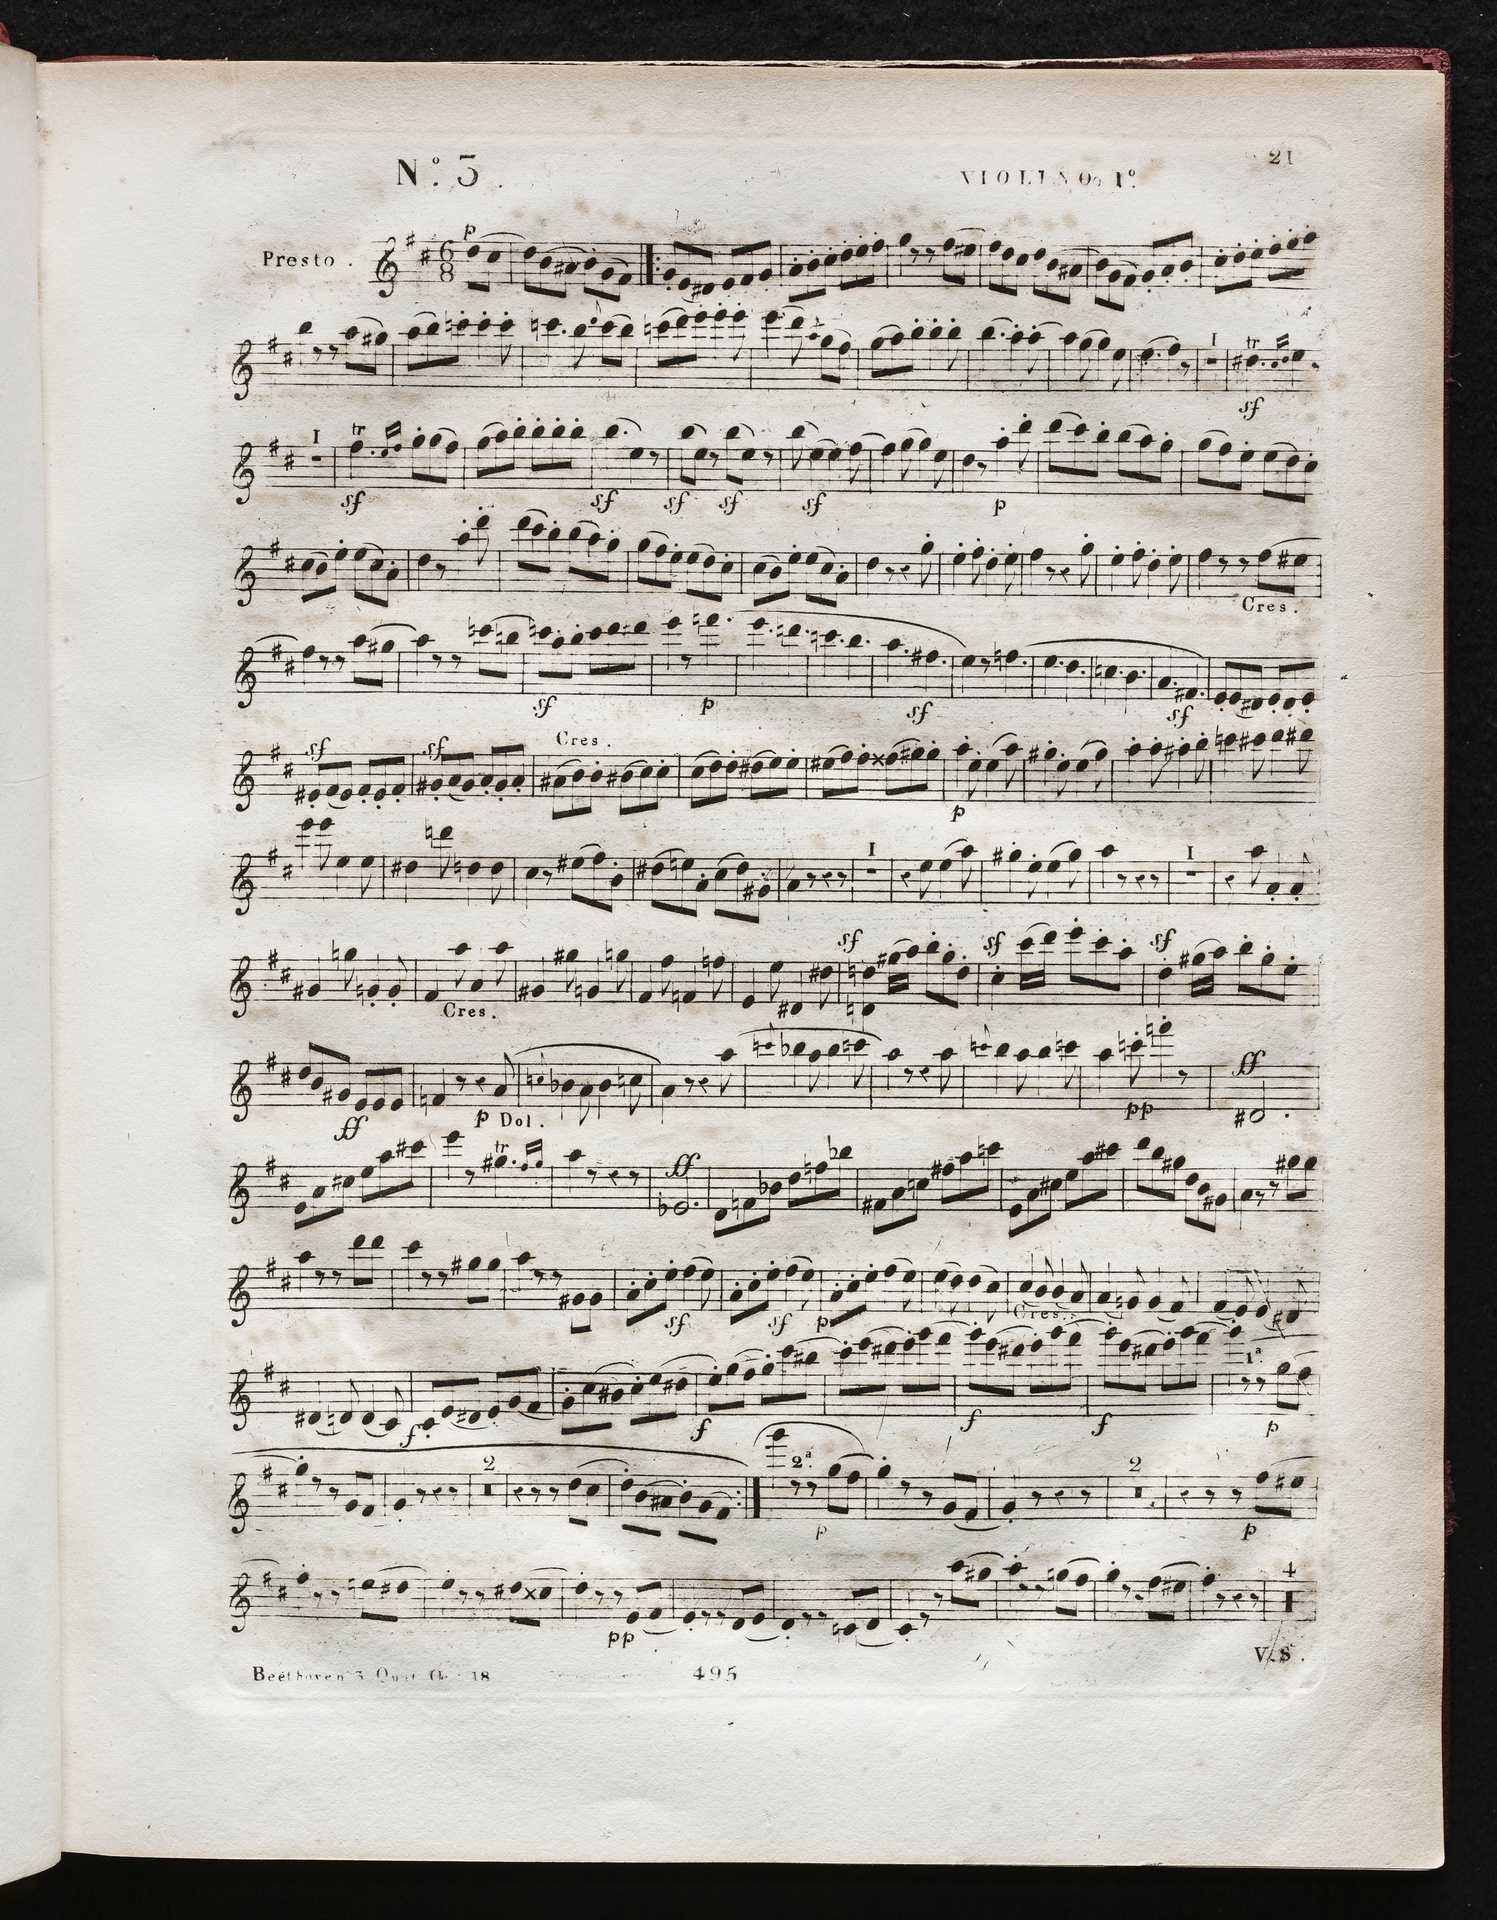 21
Nº. 3.
VIOLINO 1º.
Presto.
p
6
8
I
tr
sf
I
tr
sf
sf
sf
sf
sf
p
Cres.
sf
p
sf
sf
sf
sf
Cres.
p
I
I
sf
sf
sf
Cres.
ff
p Dol.
pp
ff
tr
ff
sf
sf
p
Cres.
f
f
f
f
1ª
p
2
2ª.
p
2
p
pp
4
V.S.
Beéthoven 3 Quat. 18
495